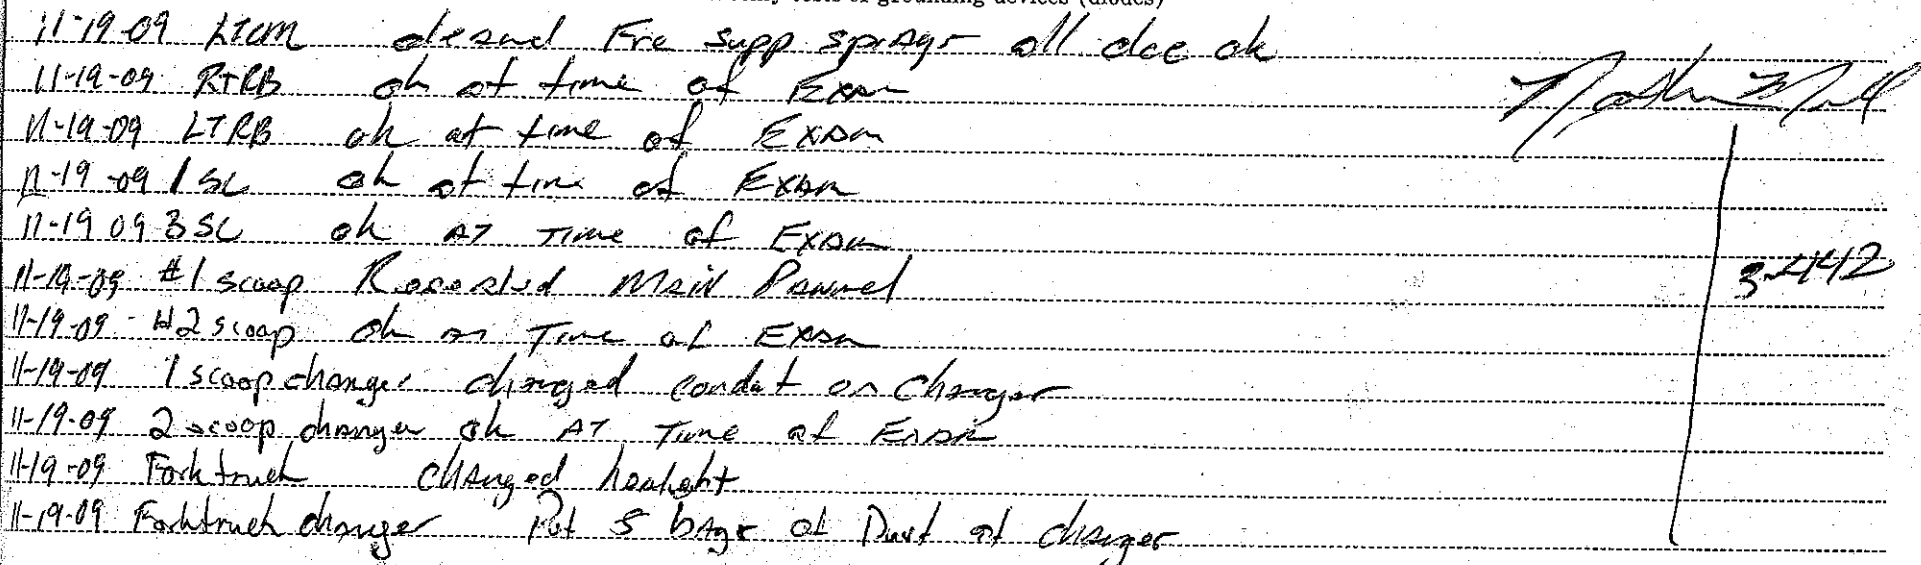 tests of grounding devices (diodes)
11-19-09 LTCM cleaned Fire supp sprays all else ok
11-19-09 RTRB ok at time of Exam
11-19-09 LTRB ok at time of Exam
11-19-09 1 SC ok at time of Exam
11-19 09 3 SC ok AT Time of Exam
11-19-09 #1 scoop Main Pannel
3-4142
11-19-09 #2 scoop ok AT Time of Exam
11-19-09 1 scoop charger changed conduit on charger
11-19-09 2 scoop charger ok AT Time of Exam
11-19-09 Forktruck changed
11-19-09 Forktruck charger Put 5 bags of Dust at charger